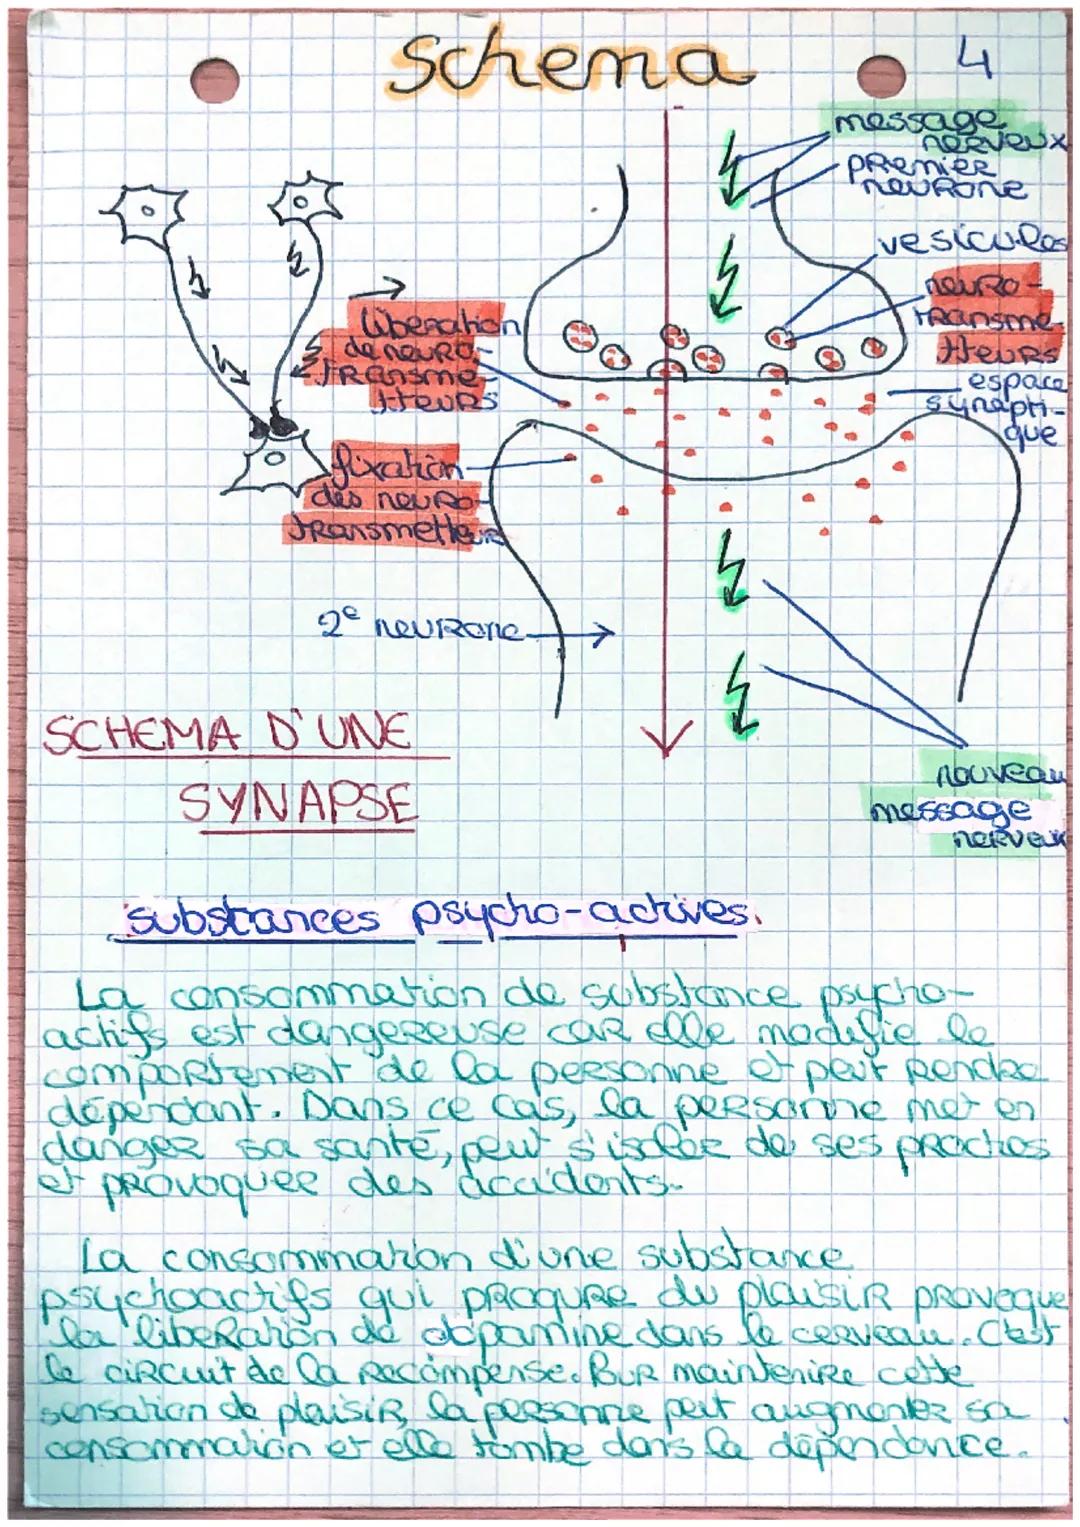 schema
4
message
nerveux
premier
neurone
vesicules
neuro-
transme
tteurs
espace
synapti-
que
liberation
de neuro-
transme-
tteurs
fixation
des neuro-
transmetteurs
2e neurone
SCHEMA D'UNE
SYNAPSE
nouveau
message
nerveux
substances psycho-actives.
La consommation de substance psycho-
actifs est dangereuse car elle modifie le
comportement de la personne et peut rendre
dépendant. Dans ce cas, la personne met en
danger sa santé, peut s'isoler de ses proches
et provoquer des accidents.
La consommation d'une substance
psychoactifs qui procure du plaisir provoque
la libération de dopamine dans le cerveau. C'est
le circuit de la récompense. Pour maintenire cette
sensation de plaisir, la personne peut augmenter sa
consommation et elle tombe dans la dépendance.